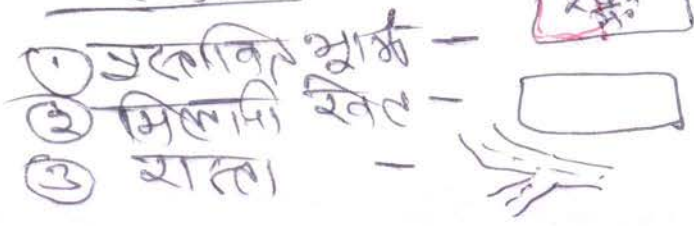 ① प्रस्तावित भूमि -
② मिलानी खेत -
③ रास्ता -